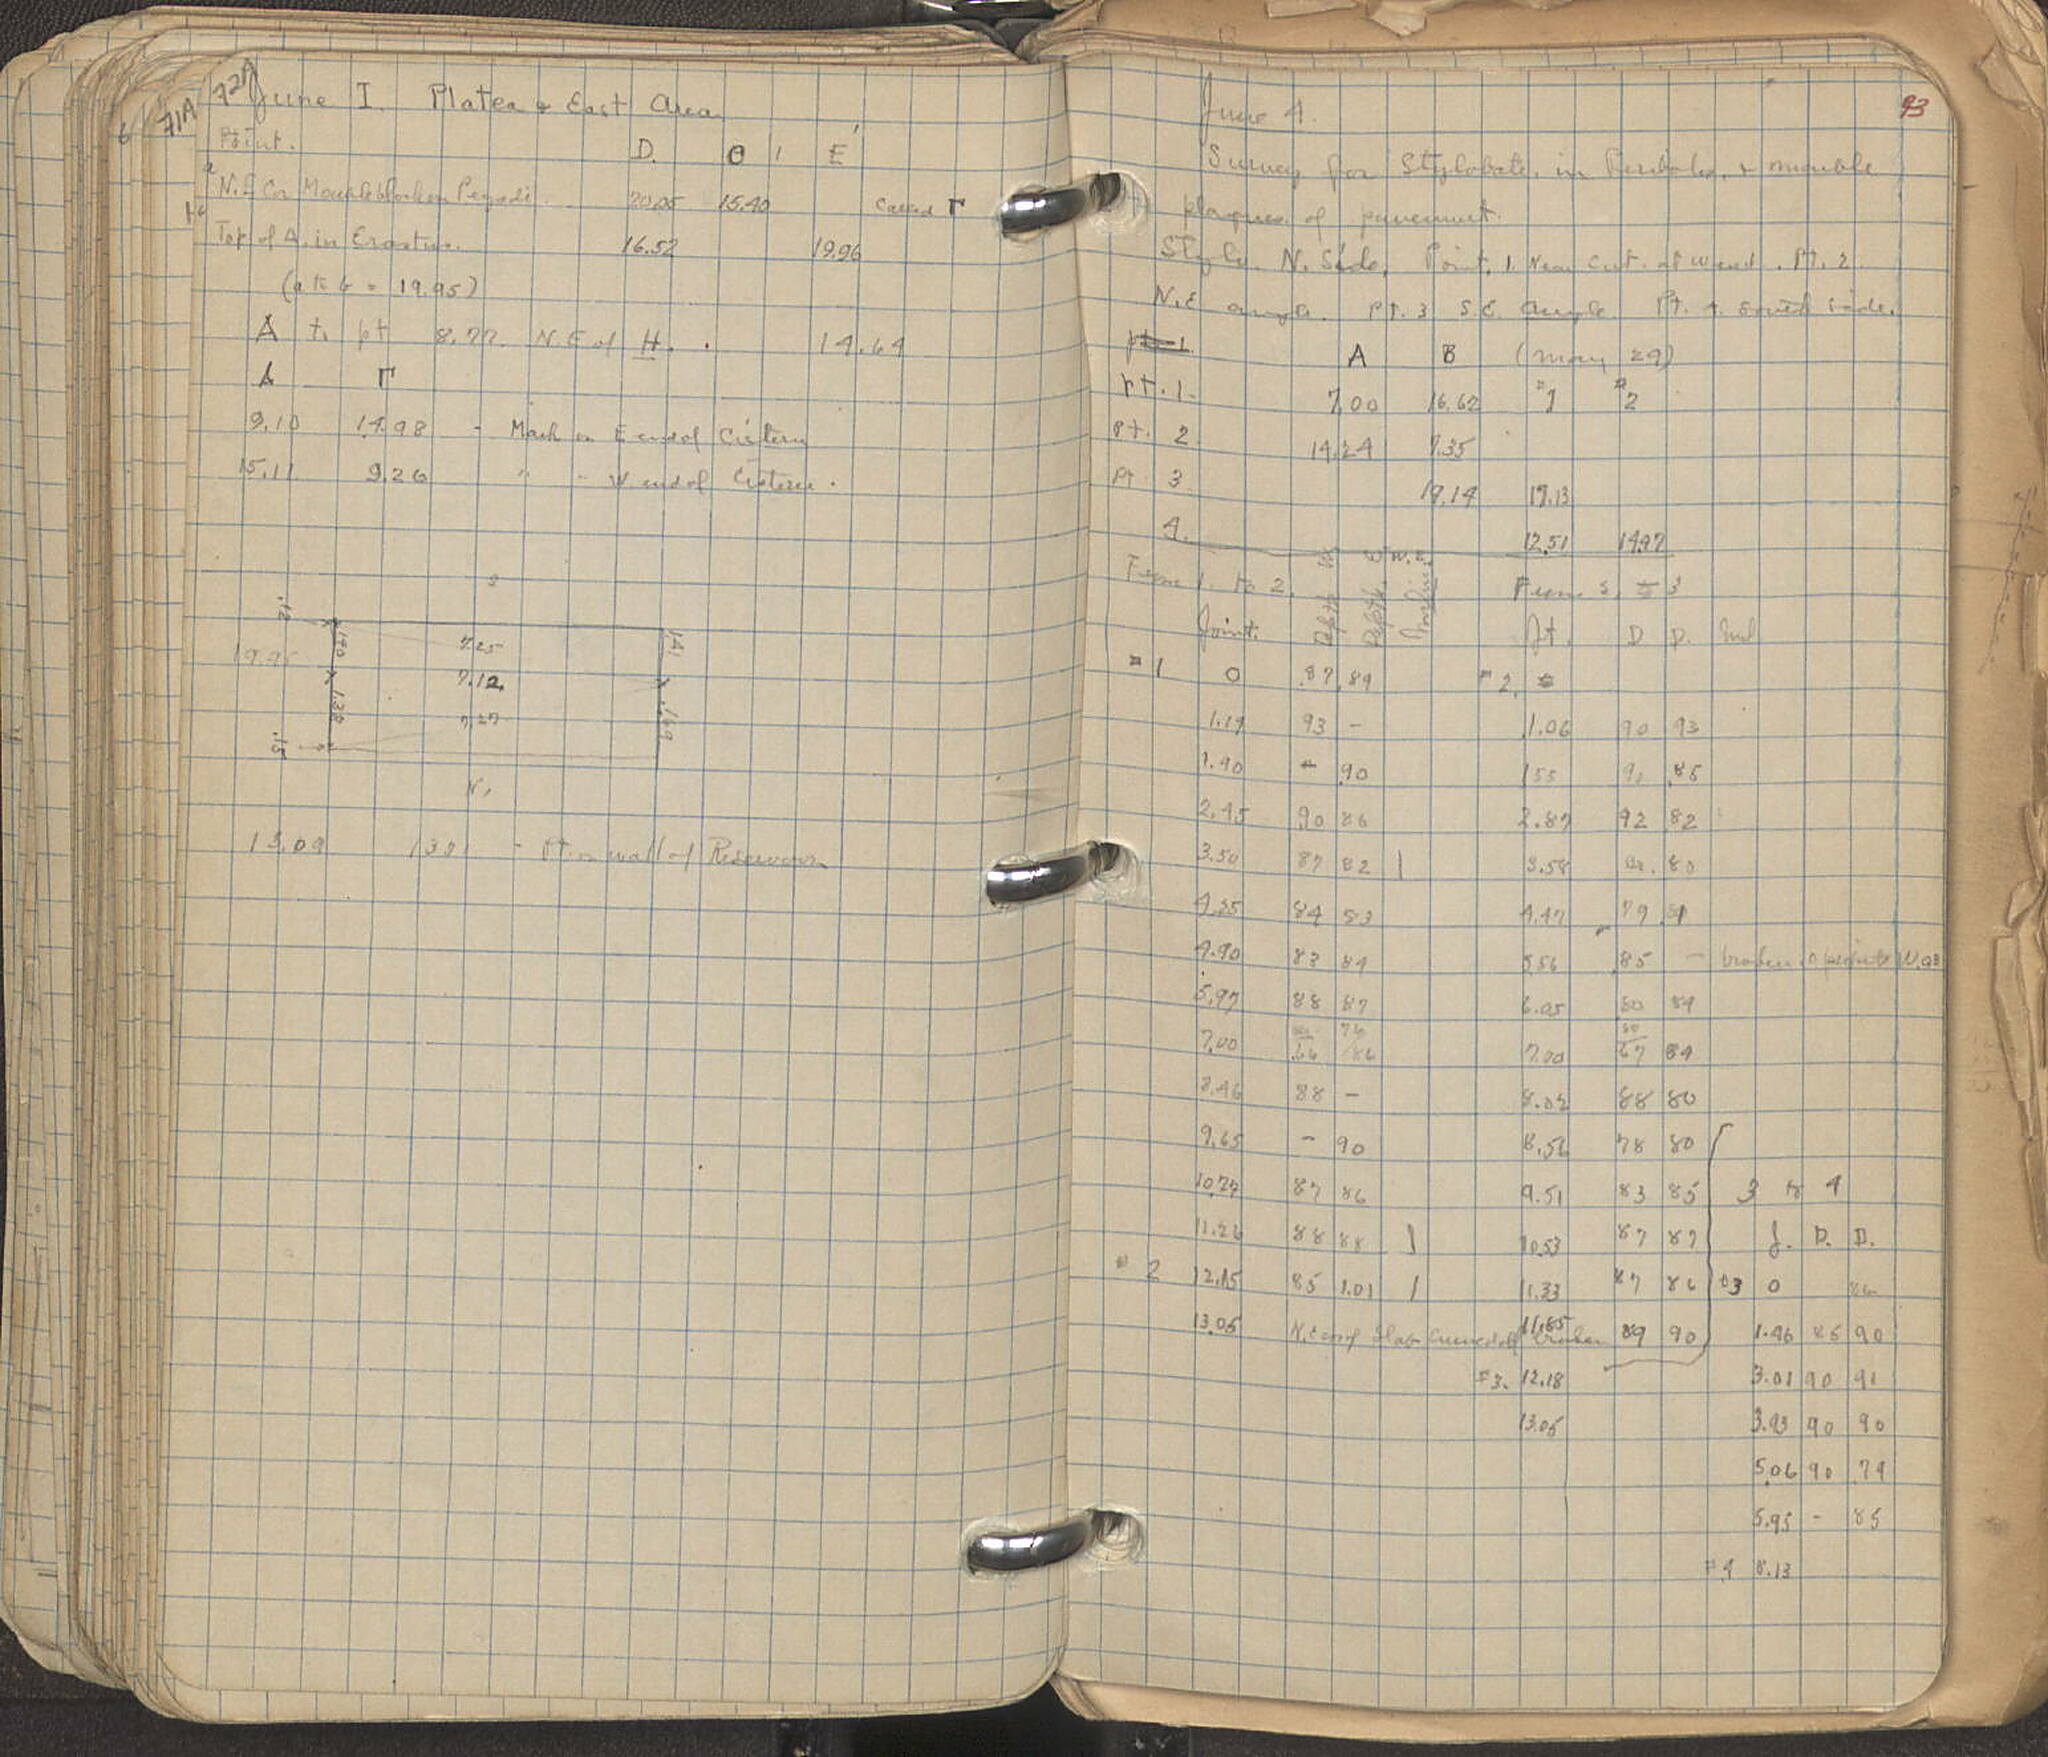 6
71A
72A
June I. Platea & East Area
Point. D. Θ E
20.05 15.40 Called Γ
Top of A. in Erastus. 16.52 19.96
(a to b = 19.95)
A to pt 8.77 N.E of H. 14.64
A Γ
9.10 14.98 - Mark on E end of Cistern
15.11 9.26 " - W. end of Cistern.
.12
1.40 7.25 1.41
19.95 7.12
1.38 7.27 1.69
.15
N.
13.09 - Pt. on wall of Reservoir
93
June 4.
Survey for Stylobate, in Peribolos, & marble
plaques of pavement.
Stylo. N. Side, Point. 1. Near Cut. at W end. Pt. 2
N.E angle. Pt. 3 S.E. Angle. Pt. 4. South side.
pt 1 A B (May 29)
pt. 1. 7.00 16.62 #1 #2
pt. 2 14.24 7.35
pt 3 19.14 19.13
4. 12.51 14.97
From 1. to 2. Depth Depth From 2 to 3
Joint. Jt. D D.
#1 0 .87 .89 #2
1.17 93 - 1.06 90 93
1.90 - .90 1.55 91 .85
2.45 .90 86 2.87 92 82
3.50 87 82 | 3.58 80
4.35 84 83 4.47 79
4.90 83 84 5.56 .85 - broken
5.97 88 87 6.05 .80 89
7.00 .66 76/86 7.00 80/67 84
8.46 88 - 8.02 88 80
9.65 - 90 8.56 78 80
10.74 87 86 9.51 83 85 3 to 4
11.26 88 88 | 10.53 87 87 J. D. D.
#2 12.15 85 1.01 | 11.33 87 86 #3 0 86
13.05 N.E end of Slab broken 11.85 89 90 1.46 85 90
#3. 12.18 3.01 90 91
13.05 3.93 90 90
5.06 90 .79
5.95 - 85
#4 8.13